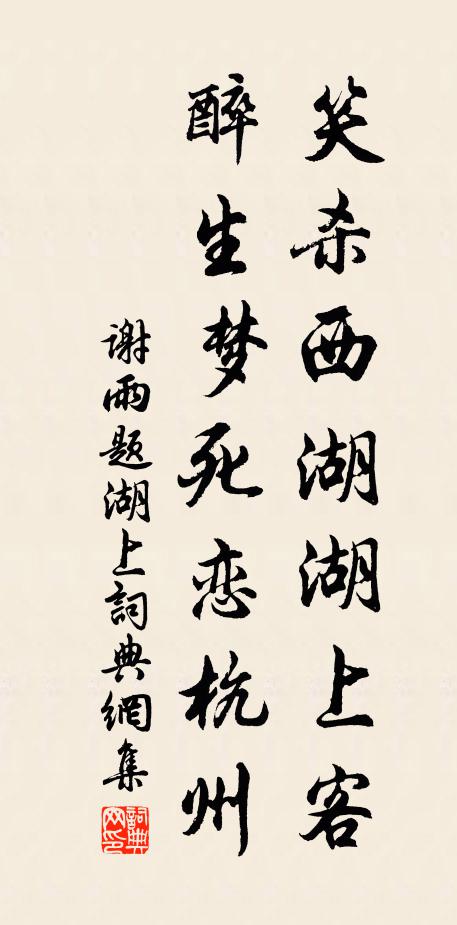 笑杀西湖湖上客
醉生梦死恋杭州
谢雨题湖上詞典網集
詞典网印